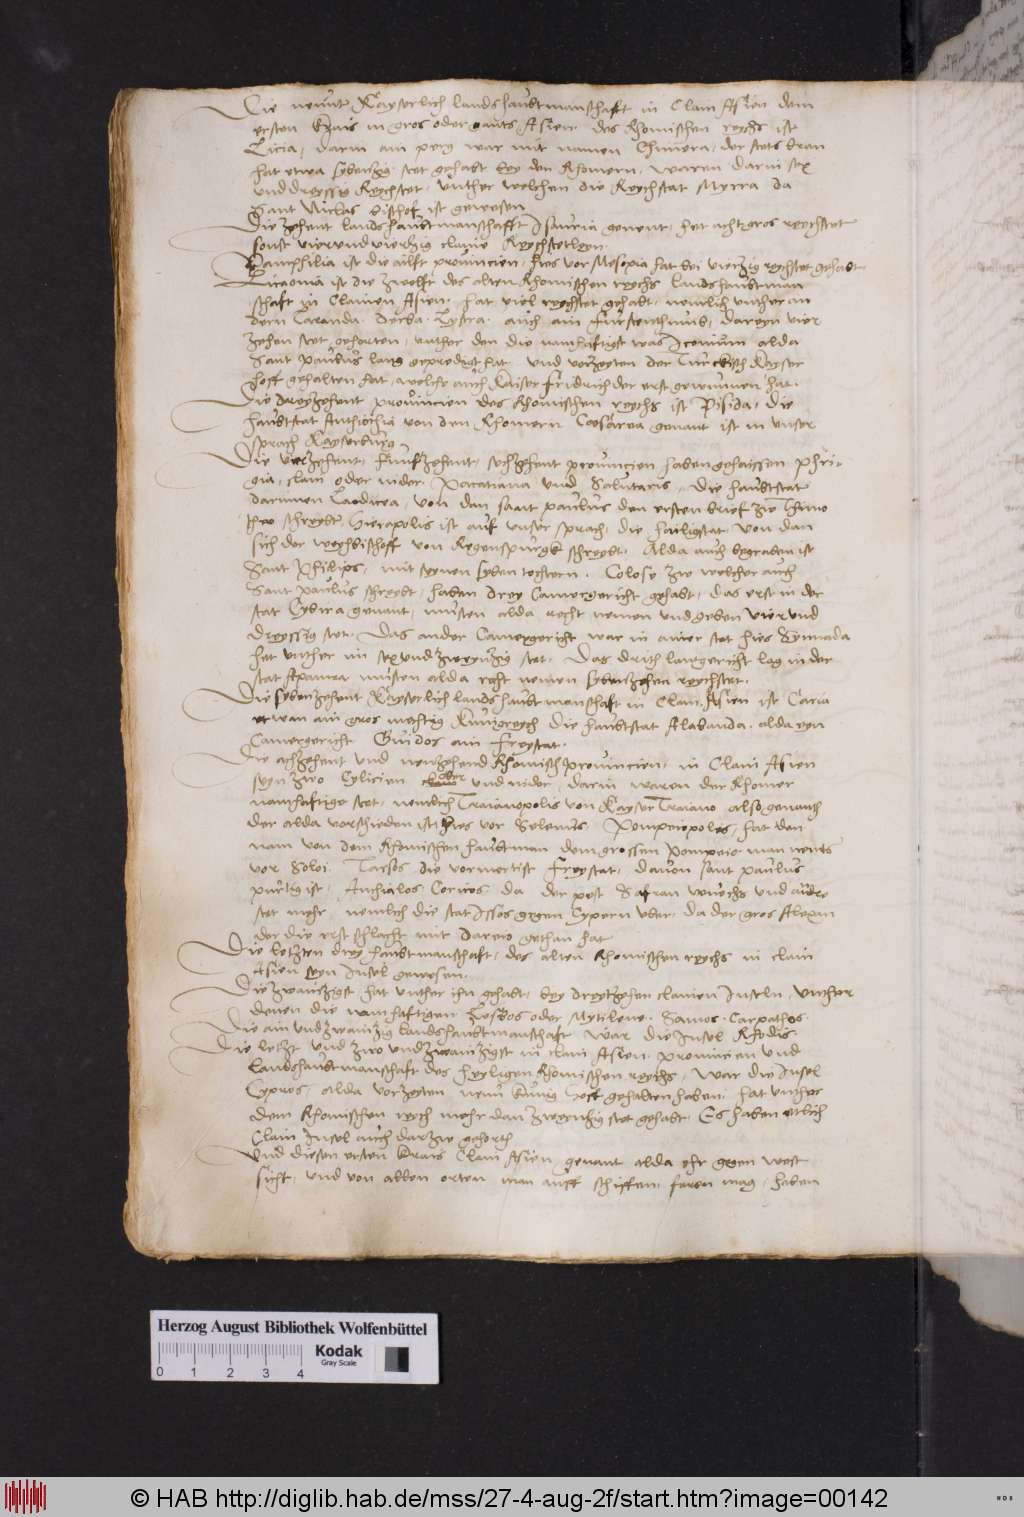 Die neunt Kayserlich landshaubtmanschaft in Clain Asien dem
ersten Krais in gros oder gants Asien des Rhomischen reychs ist
Licia, darin ain perg war mit namen Chimera, der stets bran
hat etwa sybenzig stet gehabt bey den Rhomern, waren darin sex
und dreyssig Reychstet, unther welchen die Reychstat Myrra da
Sant Niclas bischof ist gewesen
Die zehent landshaubtmanschafft Isauria genent, het acht gros reychstet
sonst vierundvierzig claine Reychstetlgen
Pamphilia ist die ailft provincien, hies vor Mosopia hat bei vierzig reychstet gehabt
Licaonia ist die zwelfft des alten Rhomischen reychs landshaubtman
schaft in Clainen Asien, hat viel reychstet gehabt, nemlich unther an
dern Laranda Derba Lystra auch ain fürstenthumb, dareyn vier
zehen stet gehorten, unther den die namhaftigst was Iconium alda
Sant Paulus lang geprediget hat und vorzeyten der Turckisch Kayser
hoff gehalten hat, welche auch Kaiser Fridrich der erst gewunnen hat.
Die dreyzehent provincien des Rhomischen reychs ist Pisida, die
haubtstat Anthiochia von den Rhomern Caesarea genant ist in unser
sprach Kayserburg
Die vierzehent, funfzehent, sechzehent provincien haben gehaissen Phri-
gia, clain oder nider Pacatiana und Salutaris, die haubtstat
darinnen Laodicea, von dan sant paulus den ersten brief zw Thimo
theo schreybt, Hierapolis ist auf unser sprach, die hailigstat von dan
sich der weychbischoff von Regenspurgk schreybt. Alda auch begraben ist
Sant Philips, mit seynen syben tochtern. Colose zw welcher auch
Sant paulus schreybt, haben drey Camergericht gehabt, das erst in der
stat Cybira genant, musten alda recht nemen und geben vierund
dreyssig stet. Das ander Camergericht war in ainer stat hies Synnada
het unther im sex und zweynzig stet. Das drith lantgericht lag in der
stat Apamea musten alda recht nemen sybenzehen reychstet.
Die sybenzehent Kayserlich landshaubtmanschaft in Clain Asien ist Caria
etwan ain gros mechtig Kunigreych die haubtstat Alabanda alda eyn
Camergericht Gnidos ain freystat.
Die achzehent und neunzehend Rhomisch provincien, in Clain Asien
seyn zwo Cylicien ober und nider, darin waren der Rhomer
namhaftige stet, nemlich Traianopolis von Kayser Traiano also genant
der alda verschieden ist, hies vor Selenus. Pompeiopoles, hat den
nam von dem Rhomischen haubtman dem grossen Pompeio man nents
vor Soloi Tarsos die vormertist freystat, davon sant paulus
purtig ist, Anchialos Coricos da der pest Safran wuechs und andre
stet mehr nemlich die stat Issos gegen Cypern uber da der gros Alexan
der die erst schlacht mit Dareio gethan hat
Die letzten drey haubtmanschaft, des alten Rhomischen reychs in clain
Asien seyn Insel gewesen.
Die zwainzigst hat unther ihn gehabt, bey dreytzehen clainen Inseln, Unther
denen die namhaftigen Lesbos oder Mytilene, Samos, Carpathos
Die ain und zwainzig landshaubtmanschaft war die Insel Rhodis
Die letzt und zwo und zwainzigst in clain Asien provincien und
landshaubtmanschaft des heyligen Rhomischen reychs, war die Insel
Cypros, alda vorzeyten neun kunig Hoff gehalten haben, hat unther
dem Rhomischen reych mehr dan zweynzig stet gehabt, Es haben etlich
Clain Insel auch darzw gehorth
Und diesen ersten Krais Clain Asien genant alda ehr gegen west
sicht, und von allen orten man auff schiffen faren mag, haben
Herzog August Bibliothek Wolfenbüttel
Kodak
Gray Scale
0 1 2 3 4
© HAB http://diglib.hab.de/mss/27-4-aug-2f/start.htm?image=00142